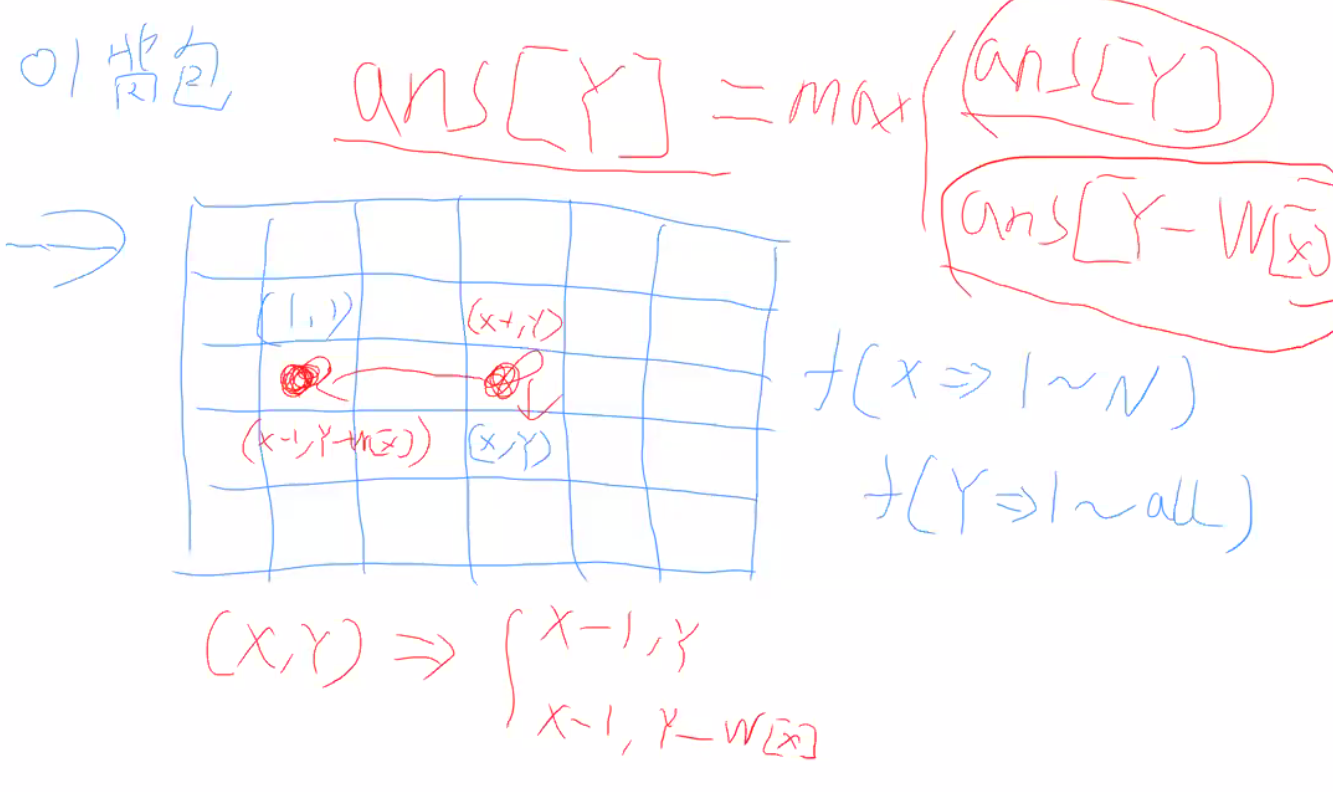 01背包
ans[Y] = max
ans[Y]
ans[Y-W[x]
(1,1)
(x-1,Y)
(x-1,Y-W[x])
(x,Y)
f(X⇒1~N)
f(Y⇒1~all)
(X,Y) ⇒
X-1,Y
X-1,Y-W[x]